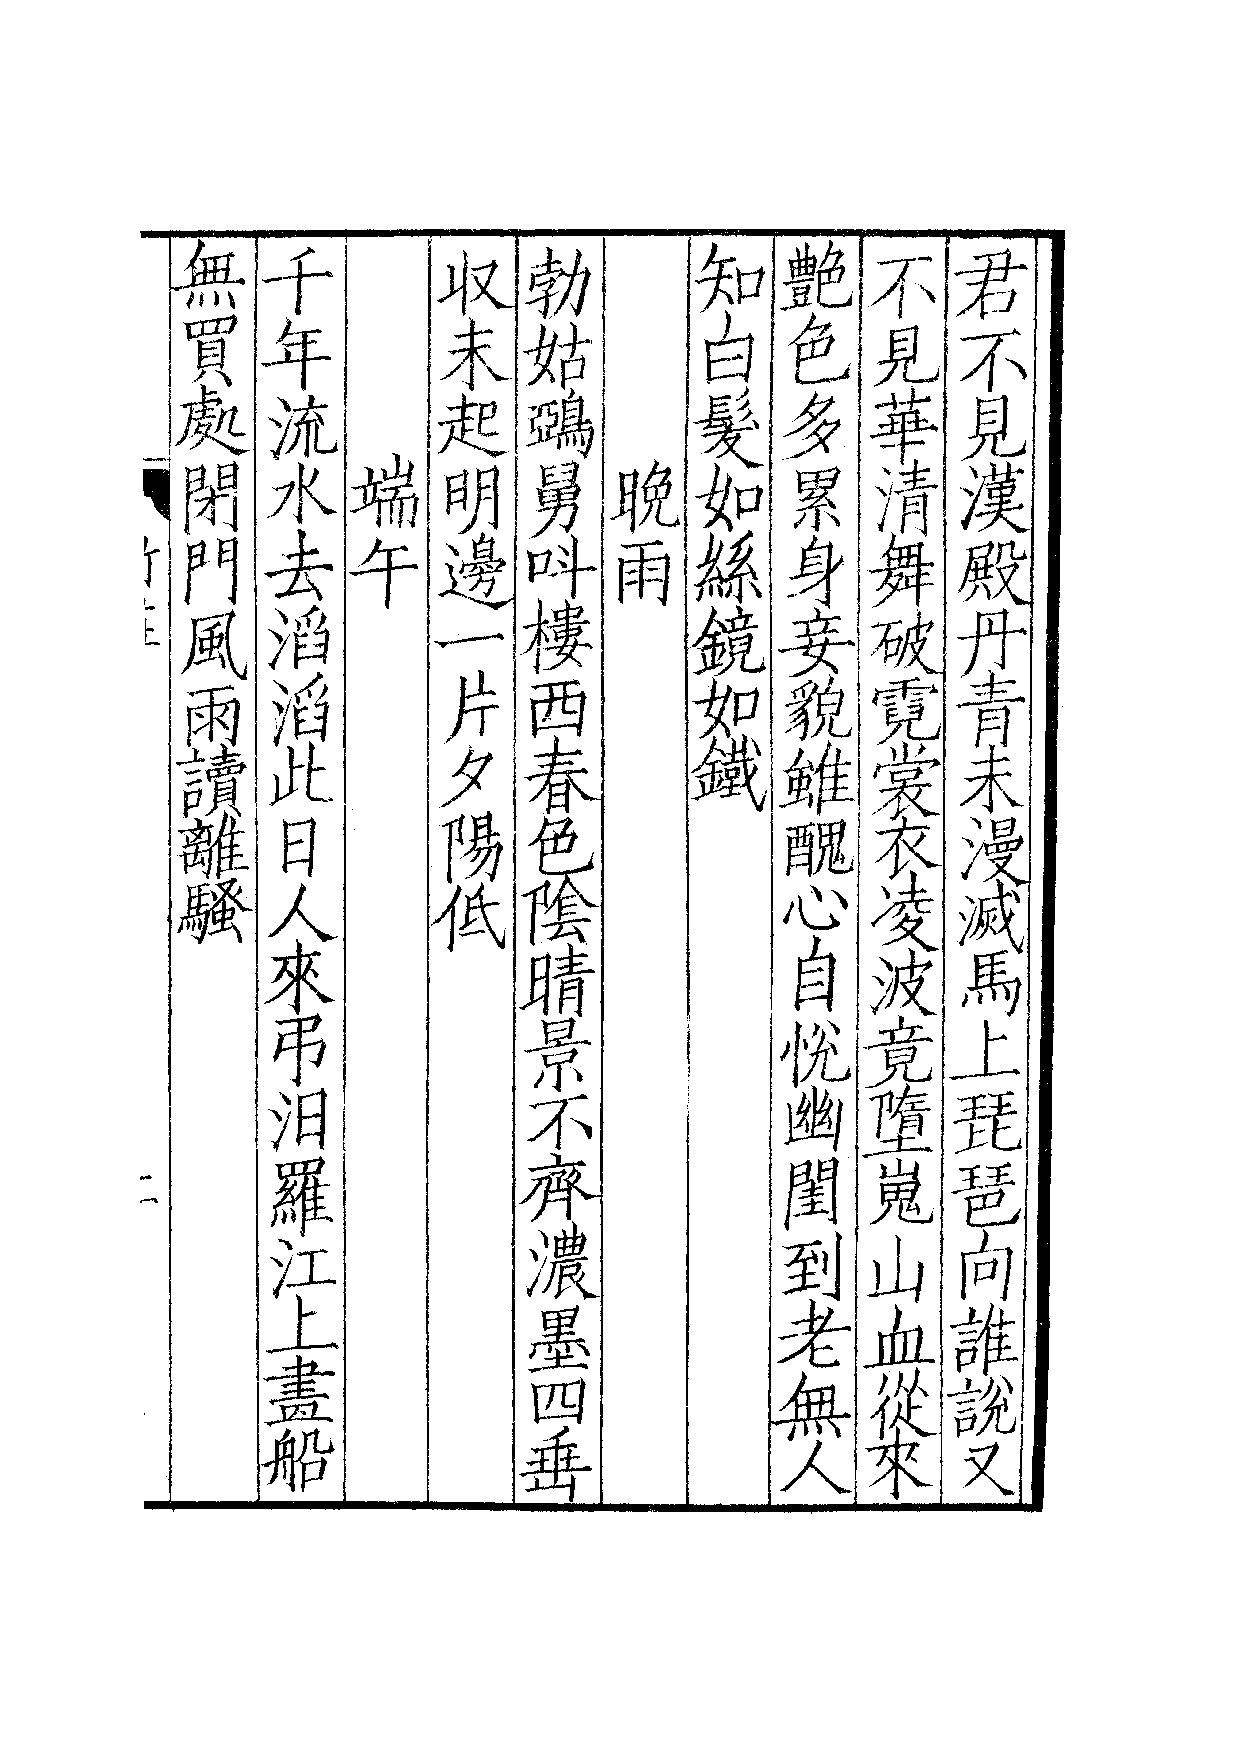 君不見漢殿丹青未漫滅馬上琵琶向誰說又
不見華清舞破霓裳衣凌波竟墮嵬山血從來
艷色多累身妾貌雖醜心自悅幽閨到老無人
知白髮如絲鏡如鐵
晚雨
勃姑鵶舅呌樓西春色隂晴景不齊濃墨四垂
収未起明邊一片夕陽低
端午
千年流水去滔滔此日人來弔汨羅江上畫船
無買處閉門風雨讀離騷
二